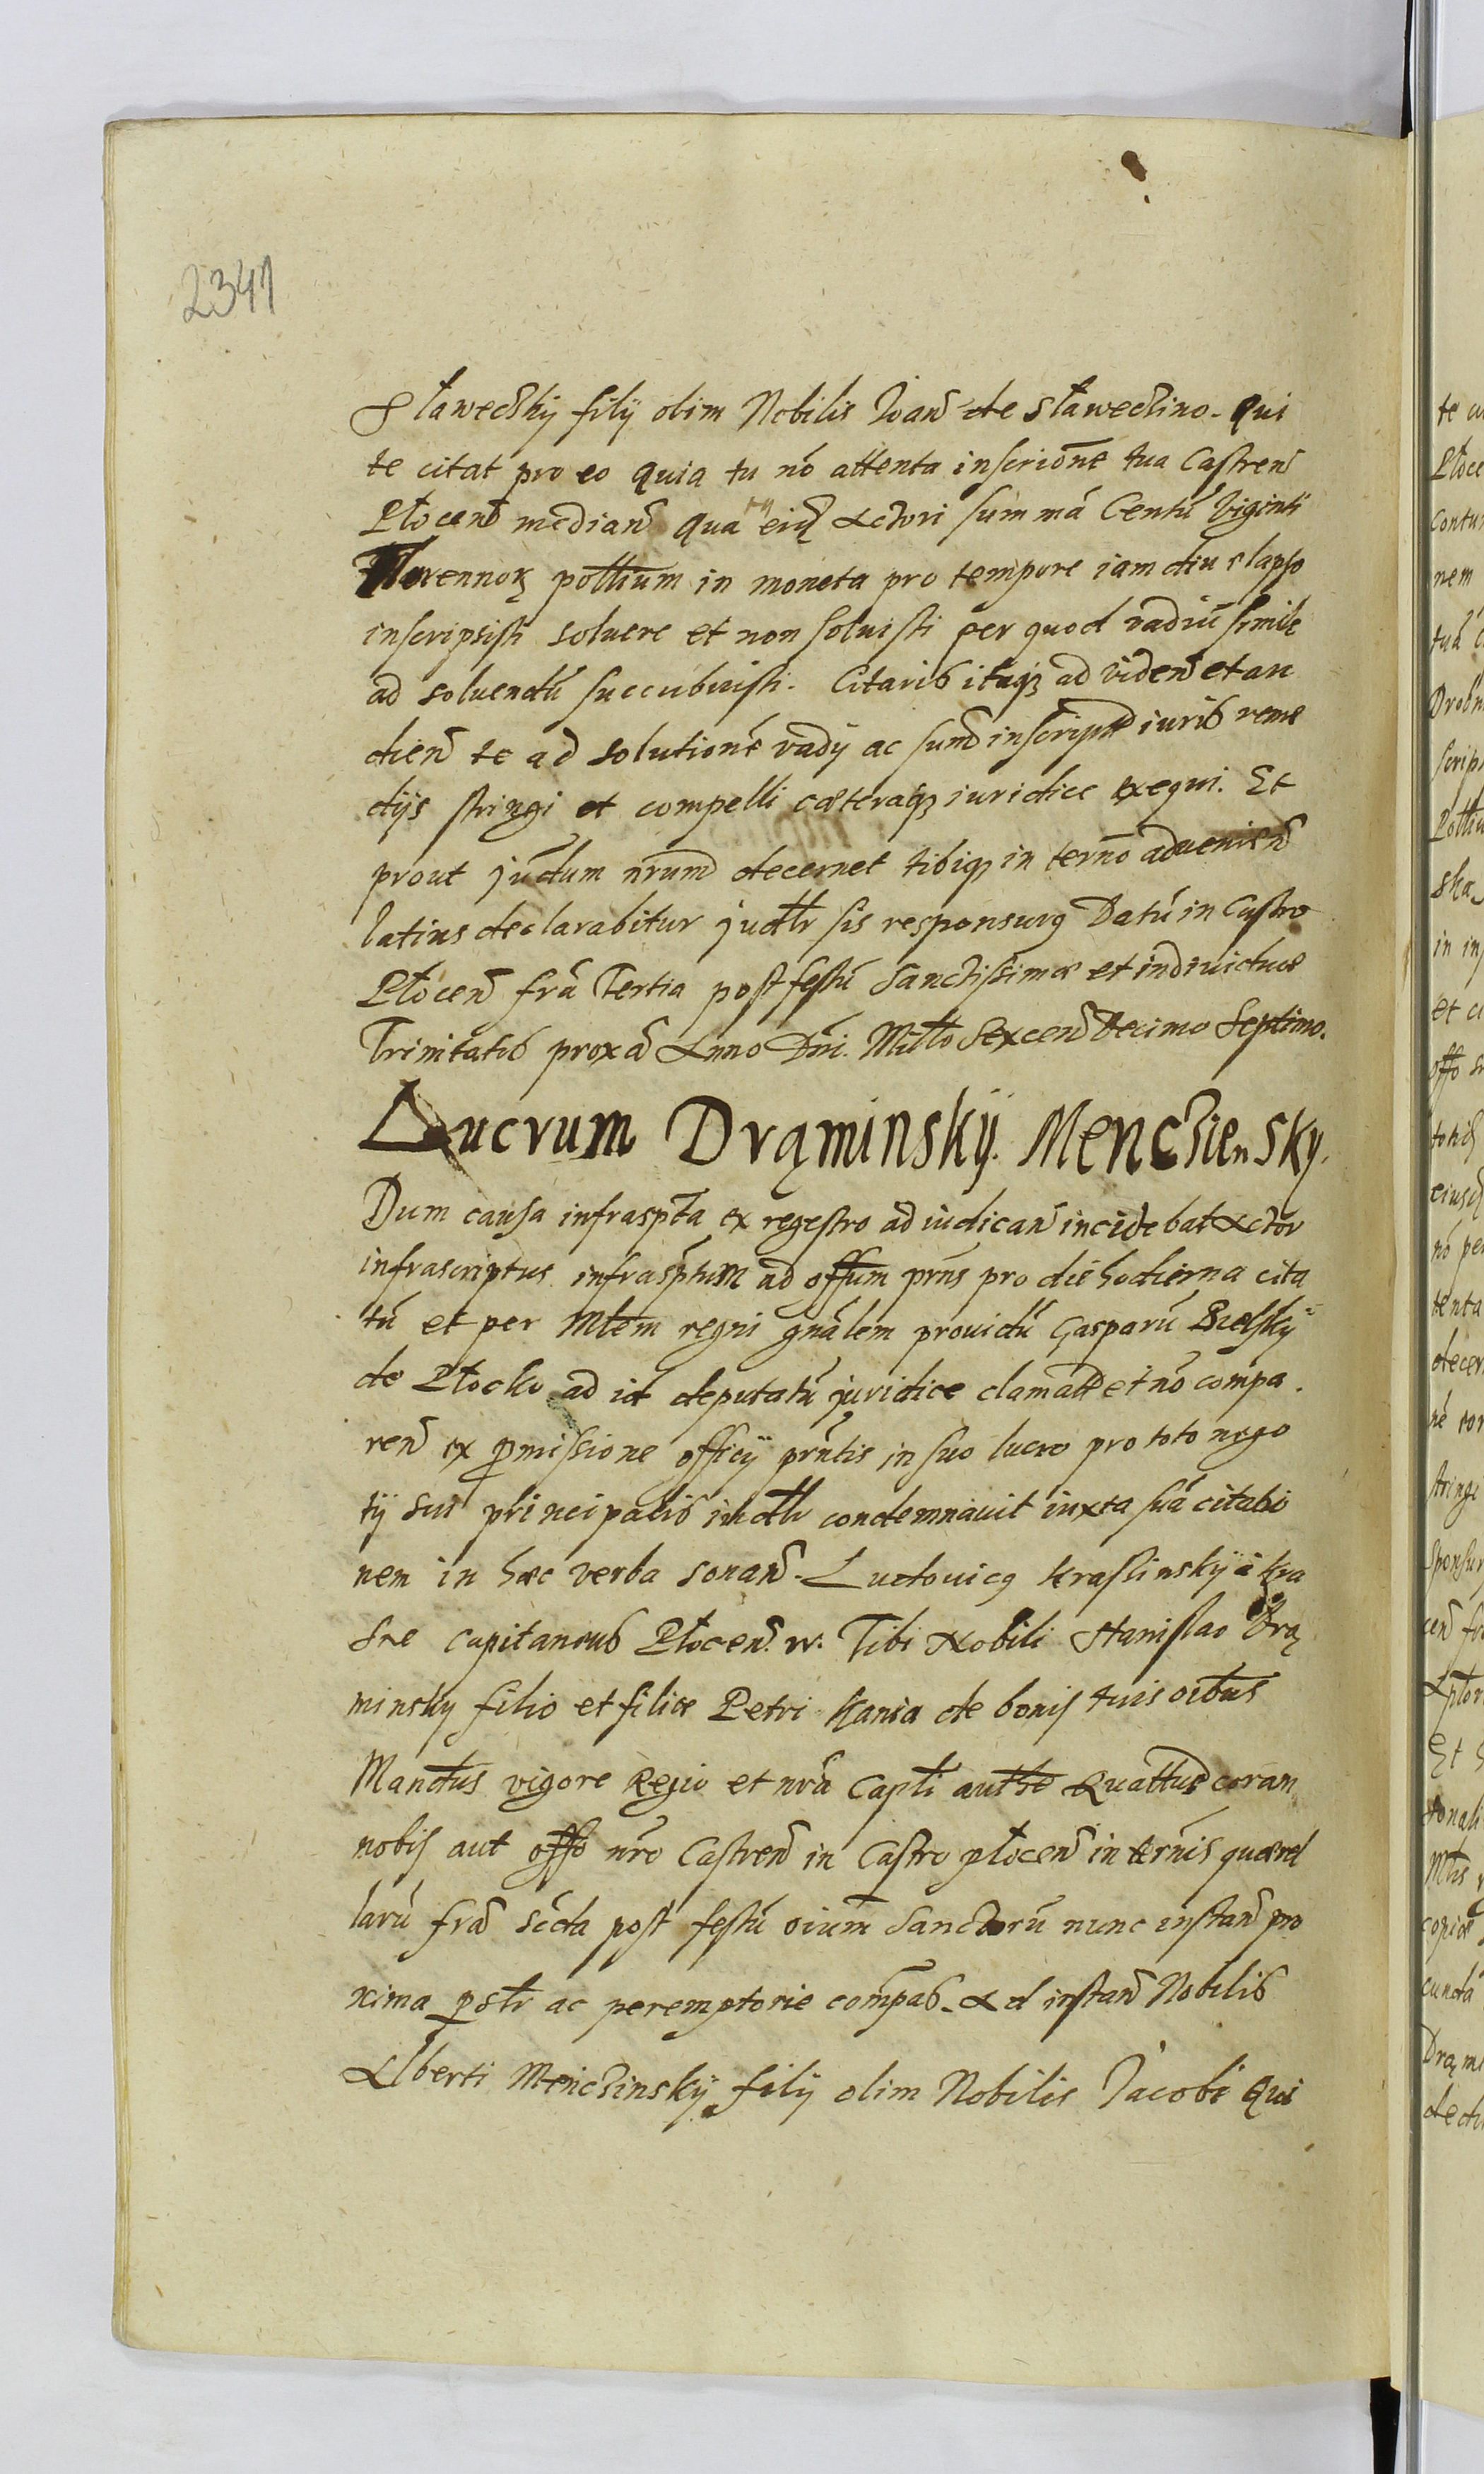 2341
Sławęczky filij olim Nobilis Joan de Sławęczino. Qui
te citat pro eo quia tu nó attenta inscrióne tua Castren
Płocen median qua eiq Actori summá Centú Viginti
Florennoʒ pollium in moneta pro tempore iam diu elapso
inscripsisti soluere et non soluisti per quod vadiú simile
ad soluendú succubuisti. Citaris itaqʒ ad viden et au
dien te ad solutioné vadij ac sum inscript iuris reme
dijs stringi et compelli cæteraqʒ iuridice exequi. Et
prout judum nrum decernet tibiqʒ in terno aduenien
latius declarabitur judtr sis responsurq Datú in Castro
Płocen fra Tertia post festú Sanctissimæ et indiuiduæ
Trinitatis proxa Anno Dni. Millo Sexcen Decimo Septimo.
Lucrum Drąminskÿ. Mencziensky.
Dum causa infraspta ex regestro ad iudican incidebat Actor
infrascriptus infrasptum ad offum prns pro die hodierna cita
tú et per Mtem regni gnalem prouidú Gasparú Bielskÿ
de Płocko ad id deputatú juridice clamatt et nó compa
ren ex pmissione officÿ prntis in suo lucro pro toto nego
tÿ sui principalis iudtr condemnauit iuxta suá citatio
nem in hæc verba sonan. Ludouicq Krasinskÿ á Kra
sne Capitaneus Płocen. rr. Tibi Nobili Stanislao Drą
minsky filio et filiæ Petri Kania de bonis tuis oibus
Mandtus vigore Regio et nra Capli autthe Quattus coram
nobis aut offo nro Castren in Castro płocen in ternis quærel
larú fra scda post festú oium Sanctorú nunc instan pro
xima pstr ac peremptorie compas. Ad instan Nobilis
Alberti Menczinskÿ filij olim Nobilis Jacobi Qui